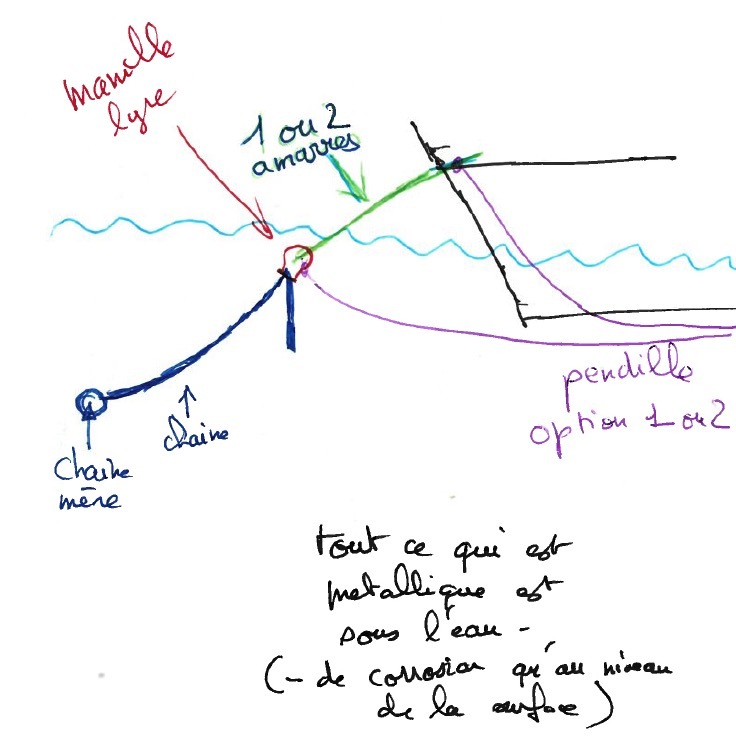 manille
lyre
1 ou 2
amarres
pendille
option 1 ou 2
chaine
Chaine
mère
tout ce qui est
metallique est
sous l'eau -
(- de corrosion qu'au niveau
de la surface)